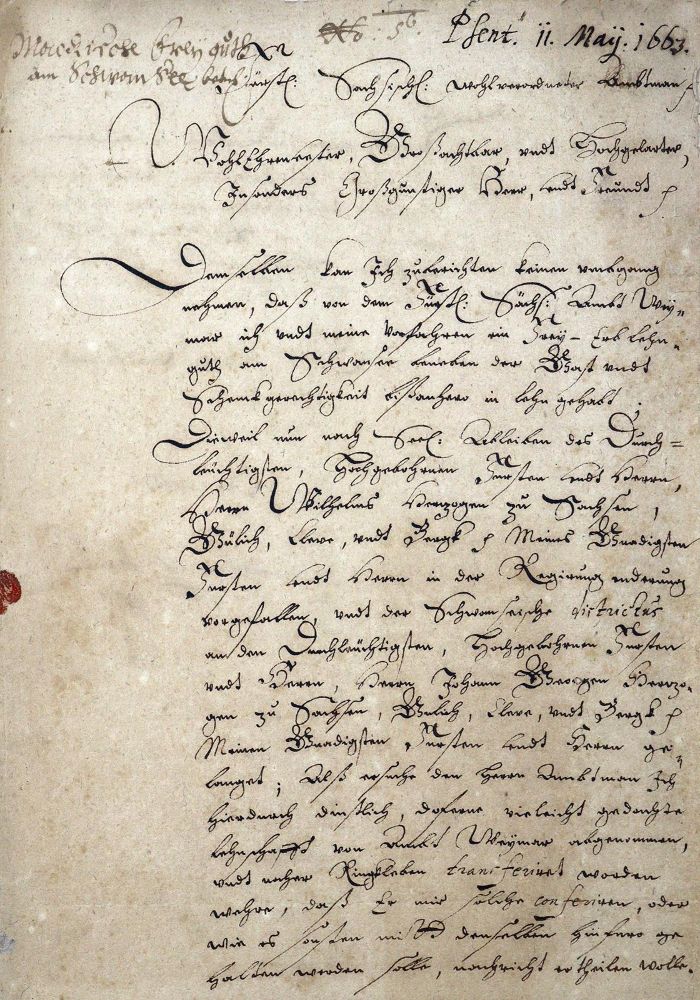 No: 56.
Psent. 11. Maij. 1663.
Frey guth
am Schwan See
Fürstl: Sächsisch: wohlverordneter Ambtman
WohlEhrenvester, Großachtbar, undt Hochgelarter,
Insonders Großgünstiger Herr, undt Freundt
Demselben kan Ich zuberichten keinen umbgang
nehmen, daß von dem Fürstl: Sächs: Ambt Wey=
mar ich undt meine Vorfahren ein Frey- Erb lehn-
guth am Schwansee beneben der Gast undt
Schenkgerechtigkeit bißanhero in lehn gehabt
Dieweil nun nach Seel: Ableiben des Durch=
leuchtigsten, Hochgebohrnen Fürsten undt Herrn,
Herrn Wilhelms Herzogen zu Sachsen,
Gülich, Cleve, undt Bergk Meines Gnädigsten
Fürsten undt Herrn in der Regirung enderung
vorgefallen, undt der Schwanseische districtus
an den Durchleüchtigsten, Hochgebohrnen Fürsten
undt Herrn, Herrn Johann Georgen Herzo-
gen zu Sachsen, Gülich, Cleve, undt Bergk
Meinen Gnädigsten Fürsten undt Herrn ge-
langet; Alß ersuche den Herrn Ambtman Ich
hierdurch dinstlich, doferne vieleicht gedachte
lehnschafft von Ambt Weymar abgenommen,
undt nacher Ringkleben transferiret worden
wehre, daß Er mir solche conferiren, oder
wie es sonsten mit denselben hinfüro ge
halten werden solle, nachricht ertheilen wolle.